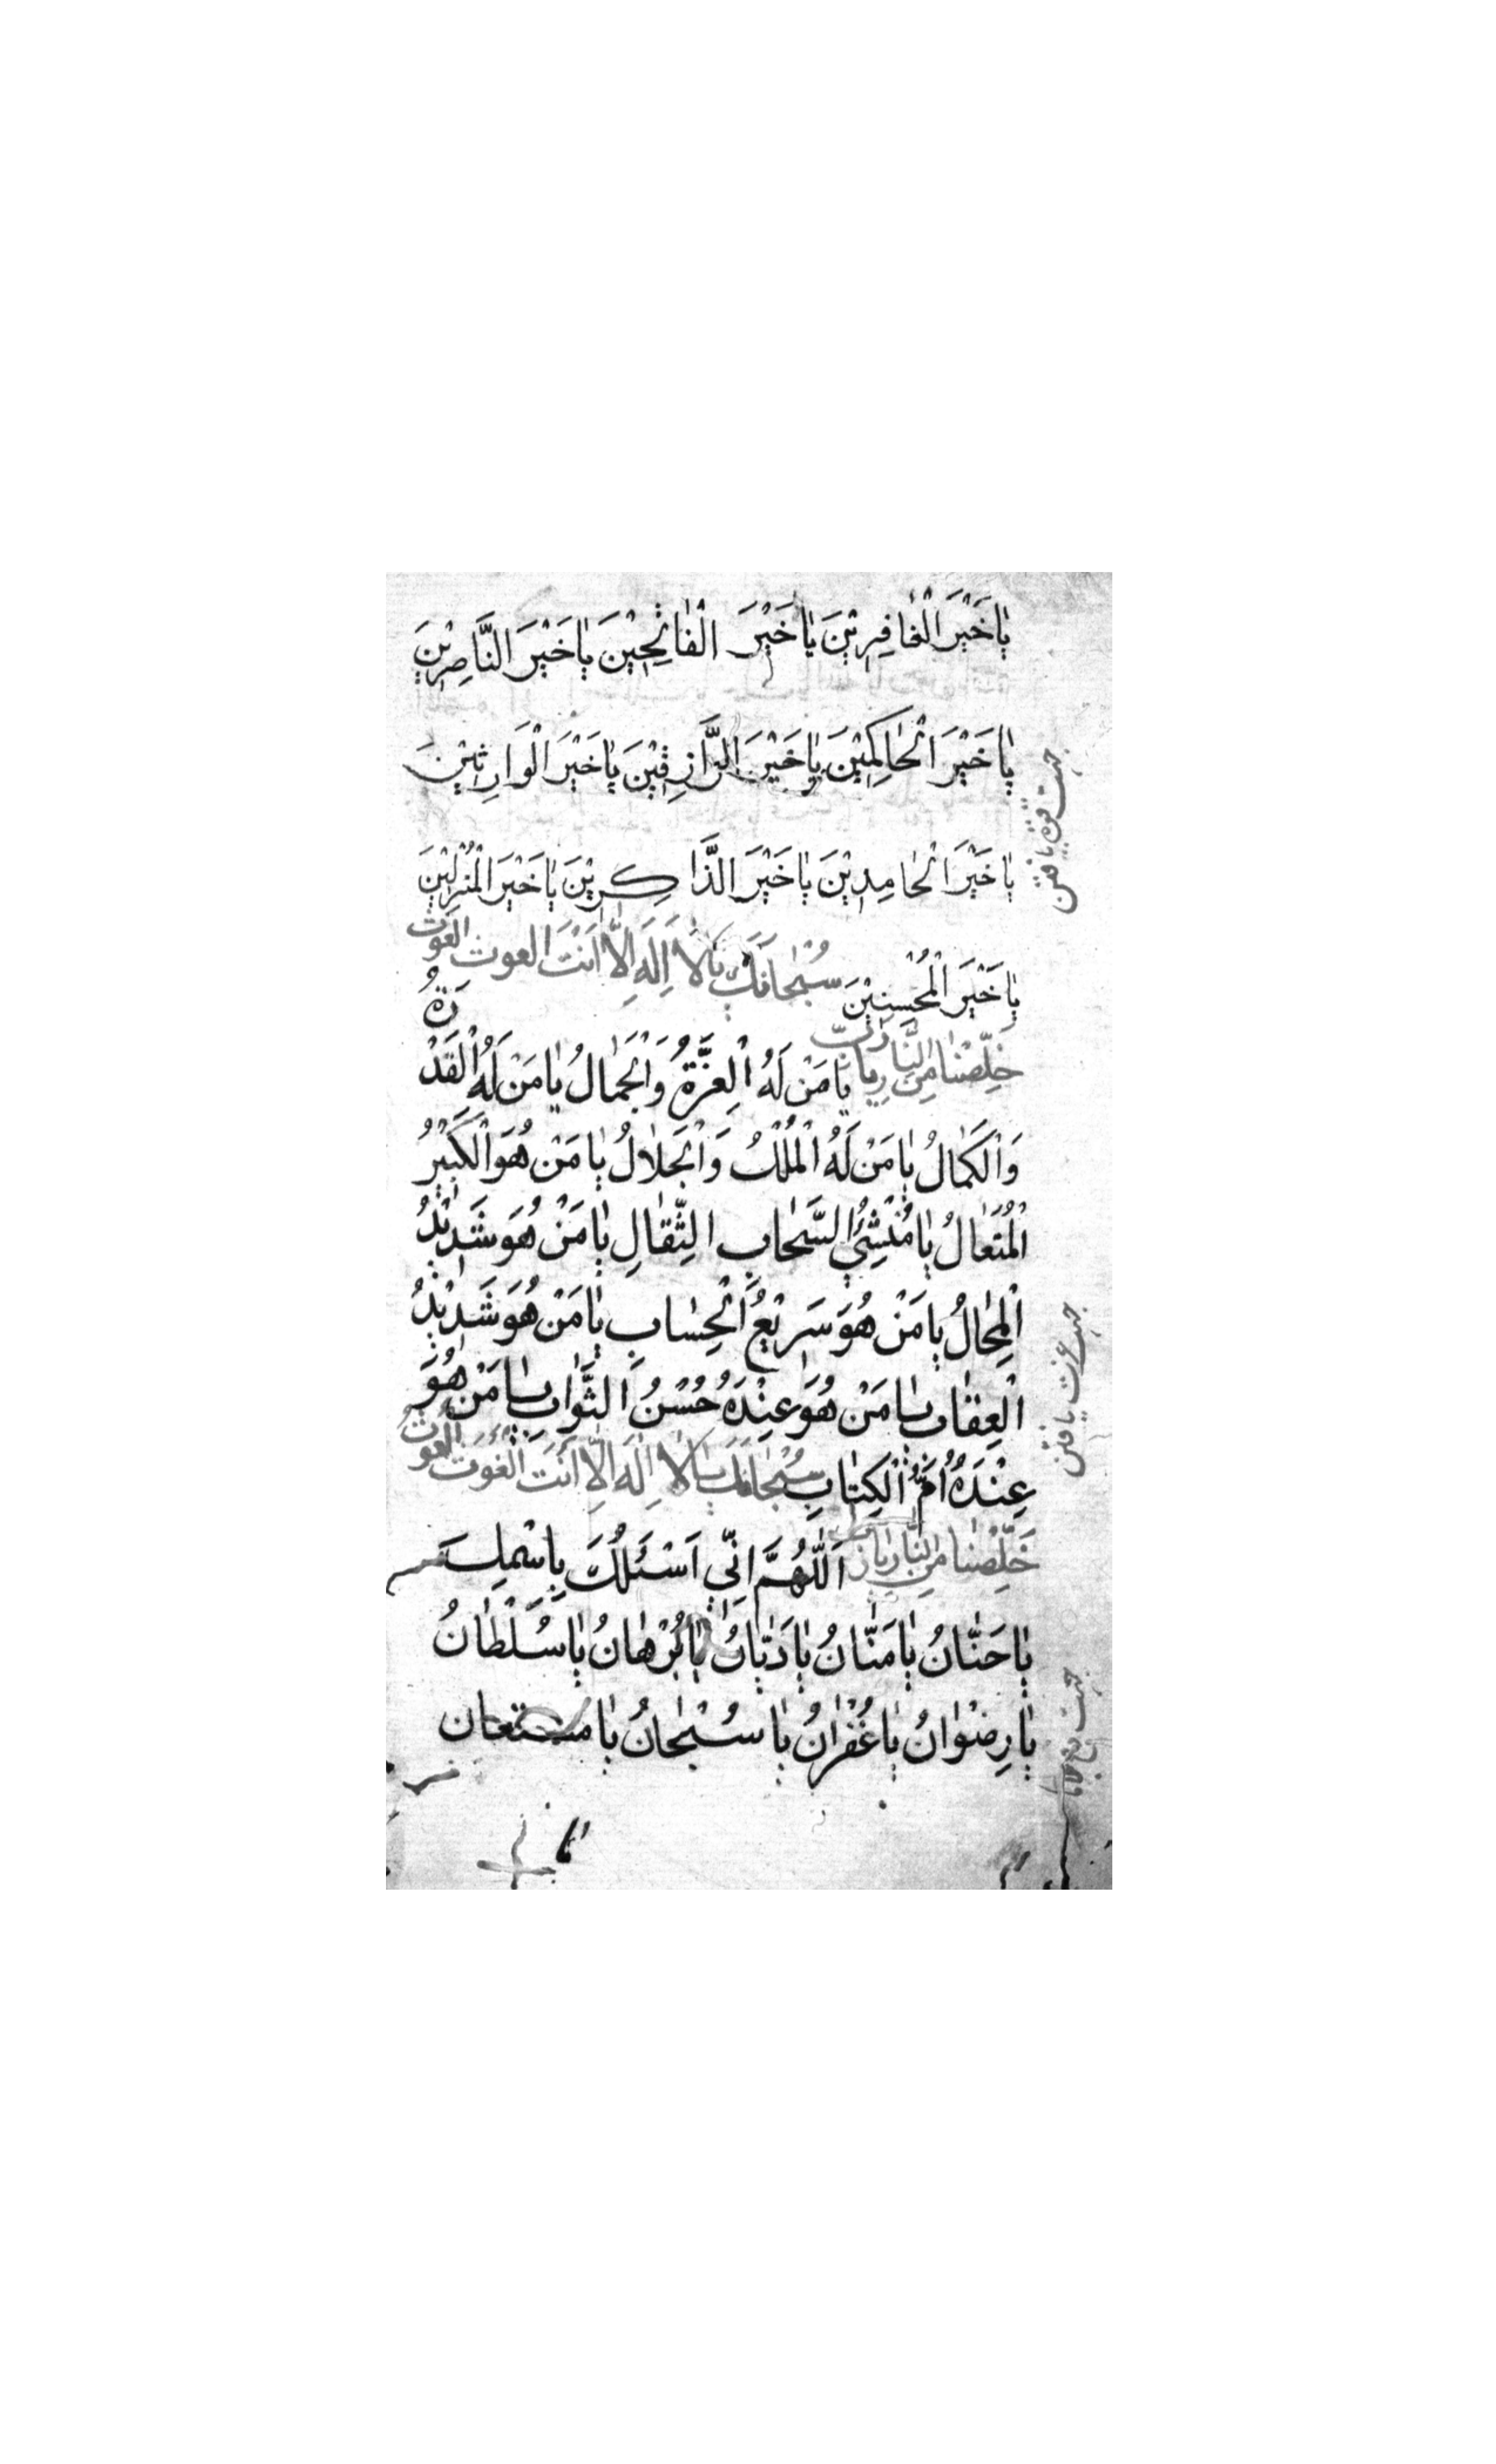 يٰاخَيْرَ الْغٰافِرِيْنَ يٰاخَيْرَ الْفٰاتِحِيْنَ يٰاخَيْرَ النَّاصِرِيْنَ
يٰاخَيْرَ الْحٰاكِمِيْنَ يٰاخَيْرَ الرَّازِقِيْنَ يٰاخَيْرَ الْوَارِثِيْنَ
جهت قوة يافتن
يٰاخَيْرَ الْحٰامِدِيْنَ يٰاخَيْرَ الذَّاكِرِيْنَ يٰاخَيْرَ الْمُنْزِلِيْنَ
يٰاخَيْرَ الْمُحْسِنِيْنَ سُبْحٰانَكَ يٰالٰا اِلَهَ اِلَّا اَنْتَ الغوث الغوث
خَلِّصْنٰا مِنَ النَّارِ يٰارَبِّ يٰامَنْ لَهُ الْعِزَّةُ وَالْجَمٰالُ يٰامَنْ لَهُ الْقُدْرَةُ
وَالْكَمٰالُ يٰامَنْ لَهُ الْمُلْكُ وَالْجَلٰالُ يٰامَنْ هُوَ الْكَبِيْرُ
الْمُتَعٰالُ يٰامُنْشِئَ السَّحٰابِ الثِّقٰالِ يٰامَنْ هُوَ شَدِيْدُ
الْمِحٰالُ يٰامَنْ هُوَ سَرِيْعُ الْحِسٰابِ يٰامَنْ هُوَ شَدِيْدُ
جهت عزت يافتن
الْعِقٰابِ يٰامَنْ هُوَ عِنْدَهُ حُسْنُ الثَّوٰابِ يٰامَنْ هُوَ
عِنْدَهُ اُمُّ الْكِتٰابِ سُبْحٰانَكَ يٰالٰا اِلَهَ اِلَّا اَنْتَ الْغَوْثَ الْغَوْثَ
خَلِّصْنٰا مِنَ النَّارِ يٰارَبِّ اَللّٰهُمَّ اِنِّي اَسْئَلُكَ بِاسْمِكَ
يٰاحَنّٰانُ يٰامَنّٰانُ يٰادَيّٰانُ يٰابُرْهٰانُ يٰاسُلْطٰانُ
يٰارِضْوٰانُ يٰاغُفْرٰانُ يٰاسُبْحٰانُ يٰامستعان